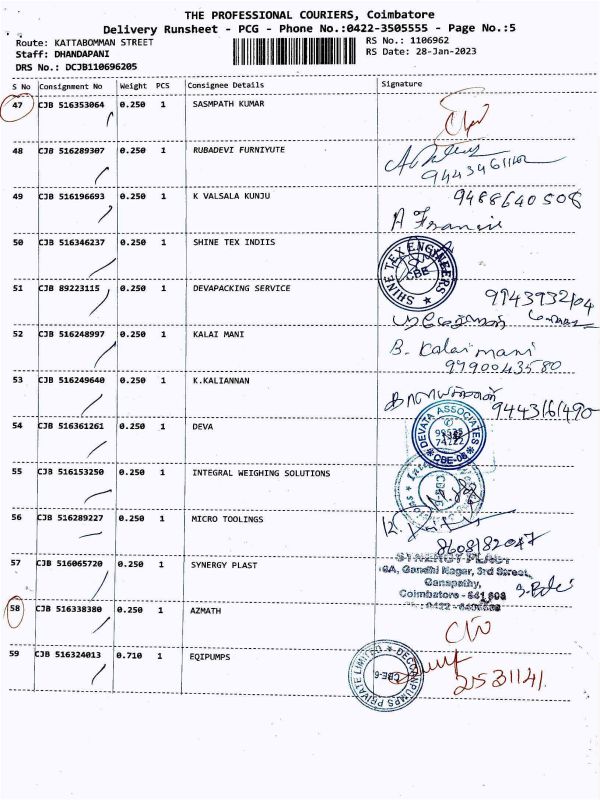 THE PROFESSIONAL COURIERS, Coimbatore
Delivery Runsheet - PCG - Phone No.:0422-3505555 - Page No.:5
Route: KATTABOMMAN STREET
Staff: DHANDAPANI
DRS No.: DCJB110696205
RS No.: 1106962
RS Date: 28-Jan-2023
S No Consignment No Weight PCS Consignee Details Signature
47 CJB 516353064 0.250 1 SASMPATH KUMAR
48 CJB 516289307 0.250 1 RUBADEVI FURNIYUTE
49 CJB 516196693 0.250 1 K VALSALA KUNJU 9488640508
A Francis
50 CJB 516346237 0.250 1 SHINE TEX INDIIS
SHINE TEX ENGINEERS CBE
51 CJB 89223115 0.250 1 DEVAPACKING SERVICE
9943932104
52 CJB 516248997 0.250 1 KALAI MANI B. Kalaimani
9790043580
53 CJB 516249640 0.250 1 K.KALIANNAN
9443161490
54 CJB 516361261 0.250 1 DEVA
DEVATA ASSOCIATES CBE-06
55 CJB 516153250 0.250 1 INTEGRAL WEIGHING SOLUTIONS
56 CJB 516289227 0.250 1 MICRO TOOLINGS
8608182047
57 CJB 516065720 0.250 1 SYNERGY PLAST
SYNERGY PLAST
6A, Gandhi Nagar, 3rd Street,
Ganapathy,
Coimbatore - 641 006
58 CJB 516338380 0.250 1 AZMATH
59 CJB 516324013 0.710 1 EQIPUMPS
DECCANPUMPS PRIVATE LIMITED CBE-6
2531141